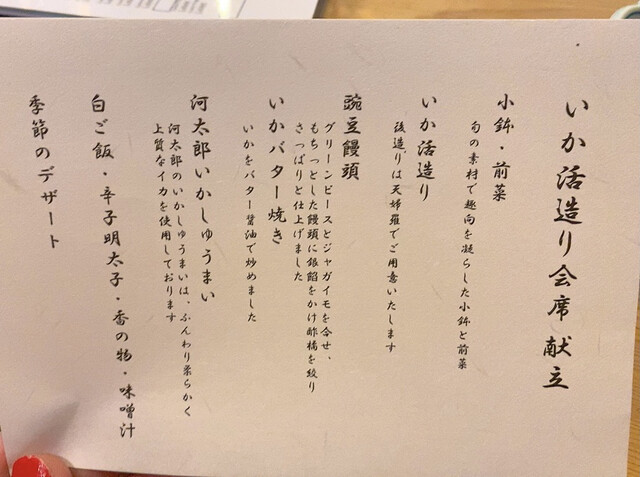 いか活造り会席献立
小鉢・前菜
旬の素材で趣向を凝らした小鉢と前菜
いか活造り
後造りは天婦羅でご用意いたします
豌豆饅頭
グリーンピースとジャガイモを合せ、
もちっとした饅頭に銀餡をかけ酢橘を絞り
さっぱりと仕上げました
いかバター焼き
いかをバター醤油で炒めました
河太郎いかしゅうまい
河太郎のいかしゅうまいは、ふんわり柔らかく
上質なイカを使用しております
白ご飯・辛子明太子・香の物・味噌汁
季節のデザート